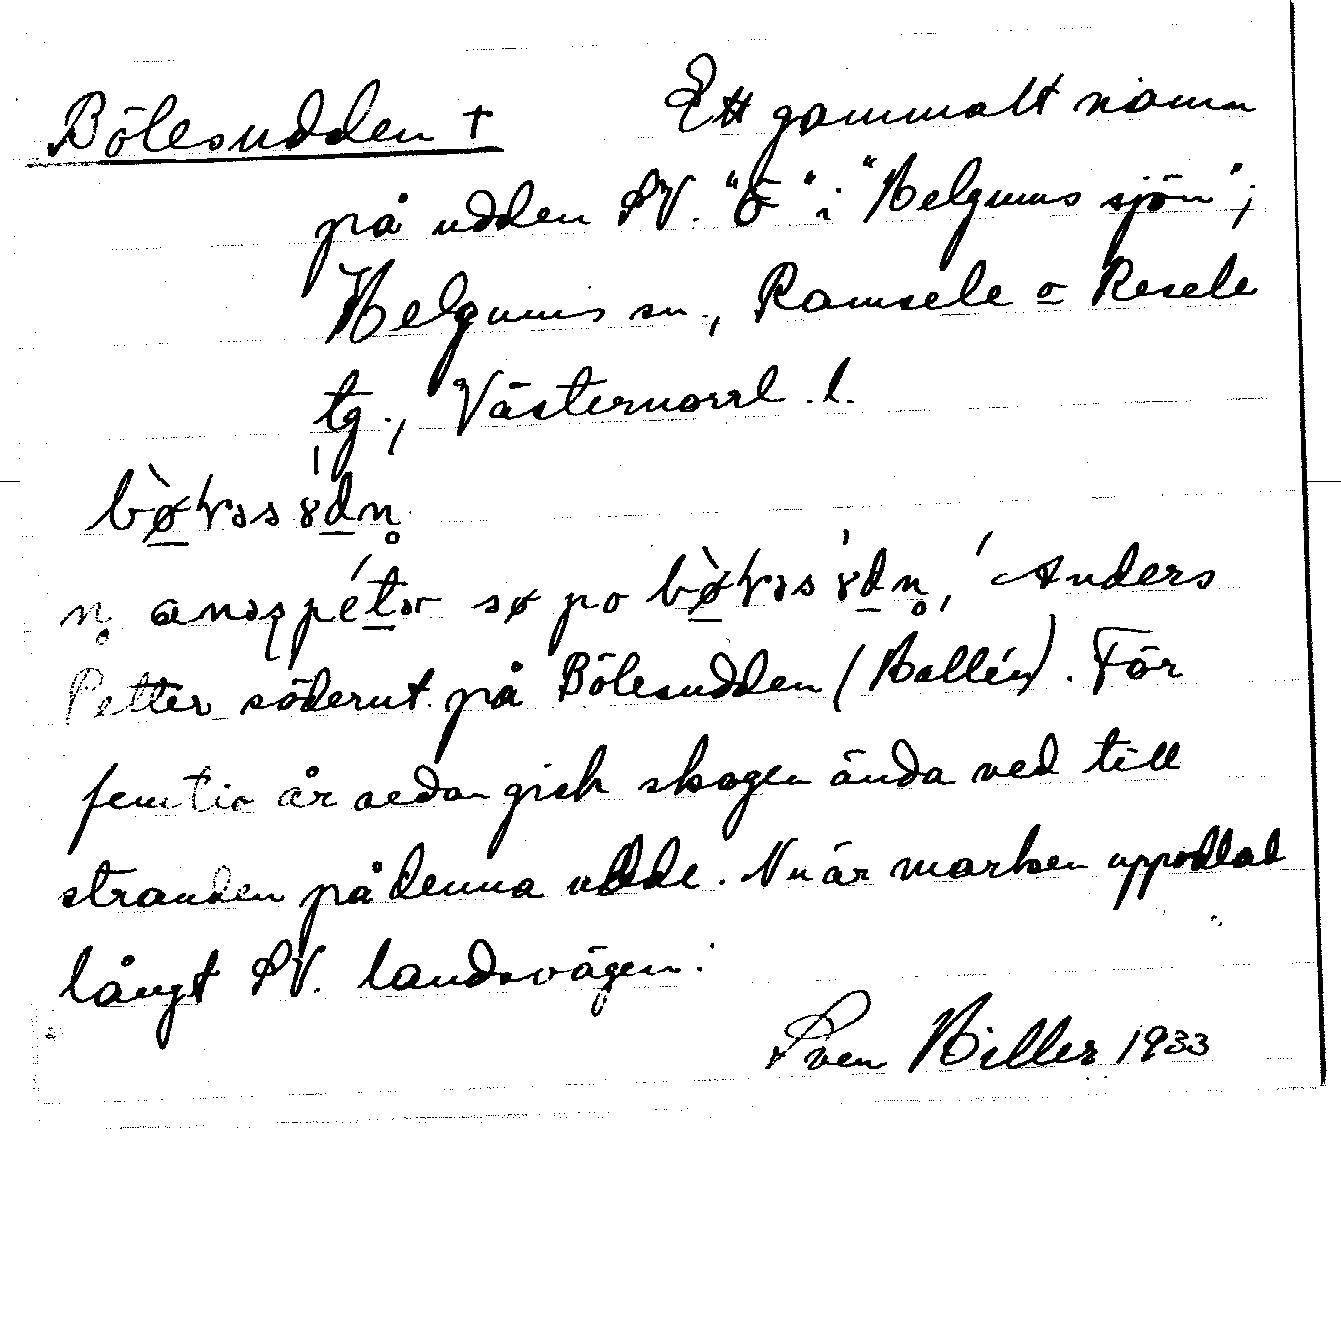 Bölesudden † Ett gammalt namn
på udden SV. "ö" i "Helgums sjön";
Helgums sn., Ramsele o Resele
tg., Västernorrl. l.
Anders
Petter söderut på Bölesudden (Hallén). För
femtio år sedan gick skogen ända ned till
stranden på denna udde. Nu är marken uppodlad
långt SV. landsvägen.
Sven Hiller 1933